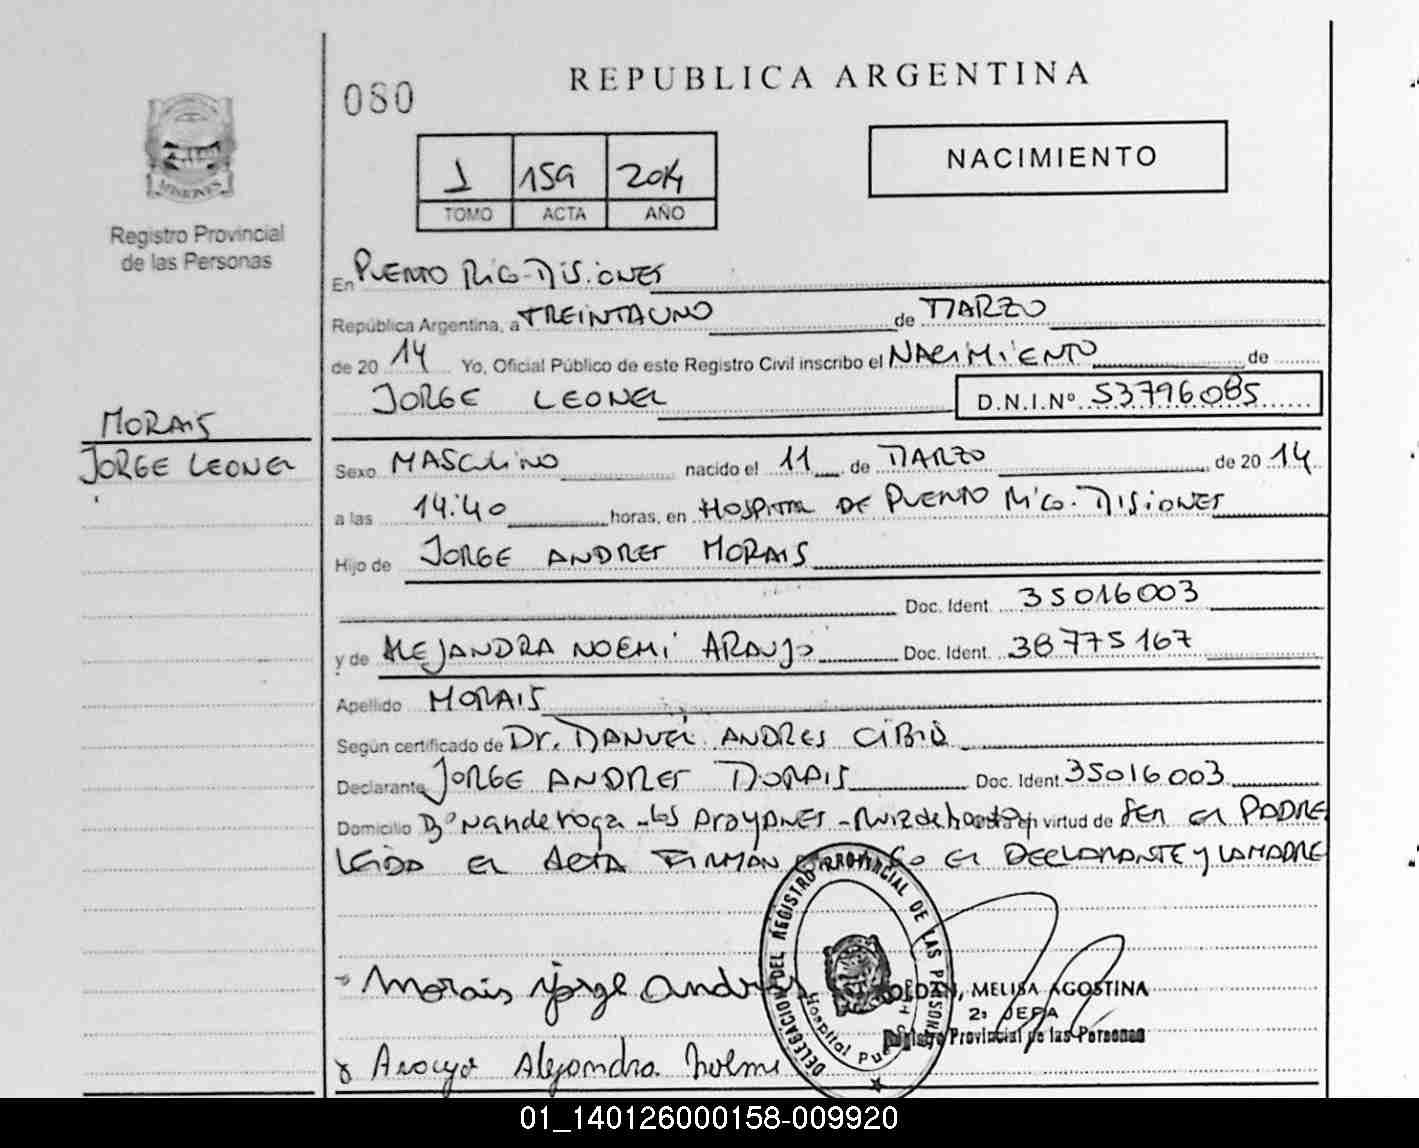 REPUBLICA ARGENTINA
080
1 159 2014
TOMO ACTA AÑO
NACIMIENTO
MISIONES
Registro Provincial
de las Personas
En PUERTO RICO-MISIONES
República Argentina, a TREINTAUNO de MARZO
de 20 14 Yo, Oficial Público de este Registro Civil inscribo el NACIMIENTO de
JORGE LEONEL D.N.I.Nº 53796085
MORAIS
JORGE LEONEL
Sexo MASCULINO nacido el 11 de MARZO de 20 14
a las 14:40 horas, en HOSPITAL DE PUERTO RICO-MISIONES
Hijo de JORGE ANDRES MORAIS
Doc. Ident. 35016003
y de ALEJANDRA NOEMI ARAUJO Doc. Ident. 38775167
Apellido MORAIS
Según certificado de Dr. ANDRES
Declarante JORGE ANDRES MORAIS Doc. Ident. 35016003
Domicilio Bº - LOS ARAYANES - en virtud de SER EL PADRE
LEIDA EL ACTA FIRMAN EL DECLARANTE Y LA MADRE
DELEGACION DEL REGISTRO PROVINCIAL DE LAS PERSONAS
Hospital
Morais Jorge Andres
MELISA AGOSTINA
2º JEFA
Registro Provincial de las Personas
Alejandra
01_140126000158-009920